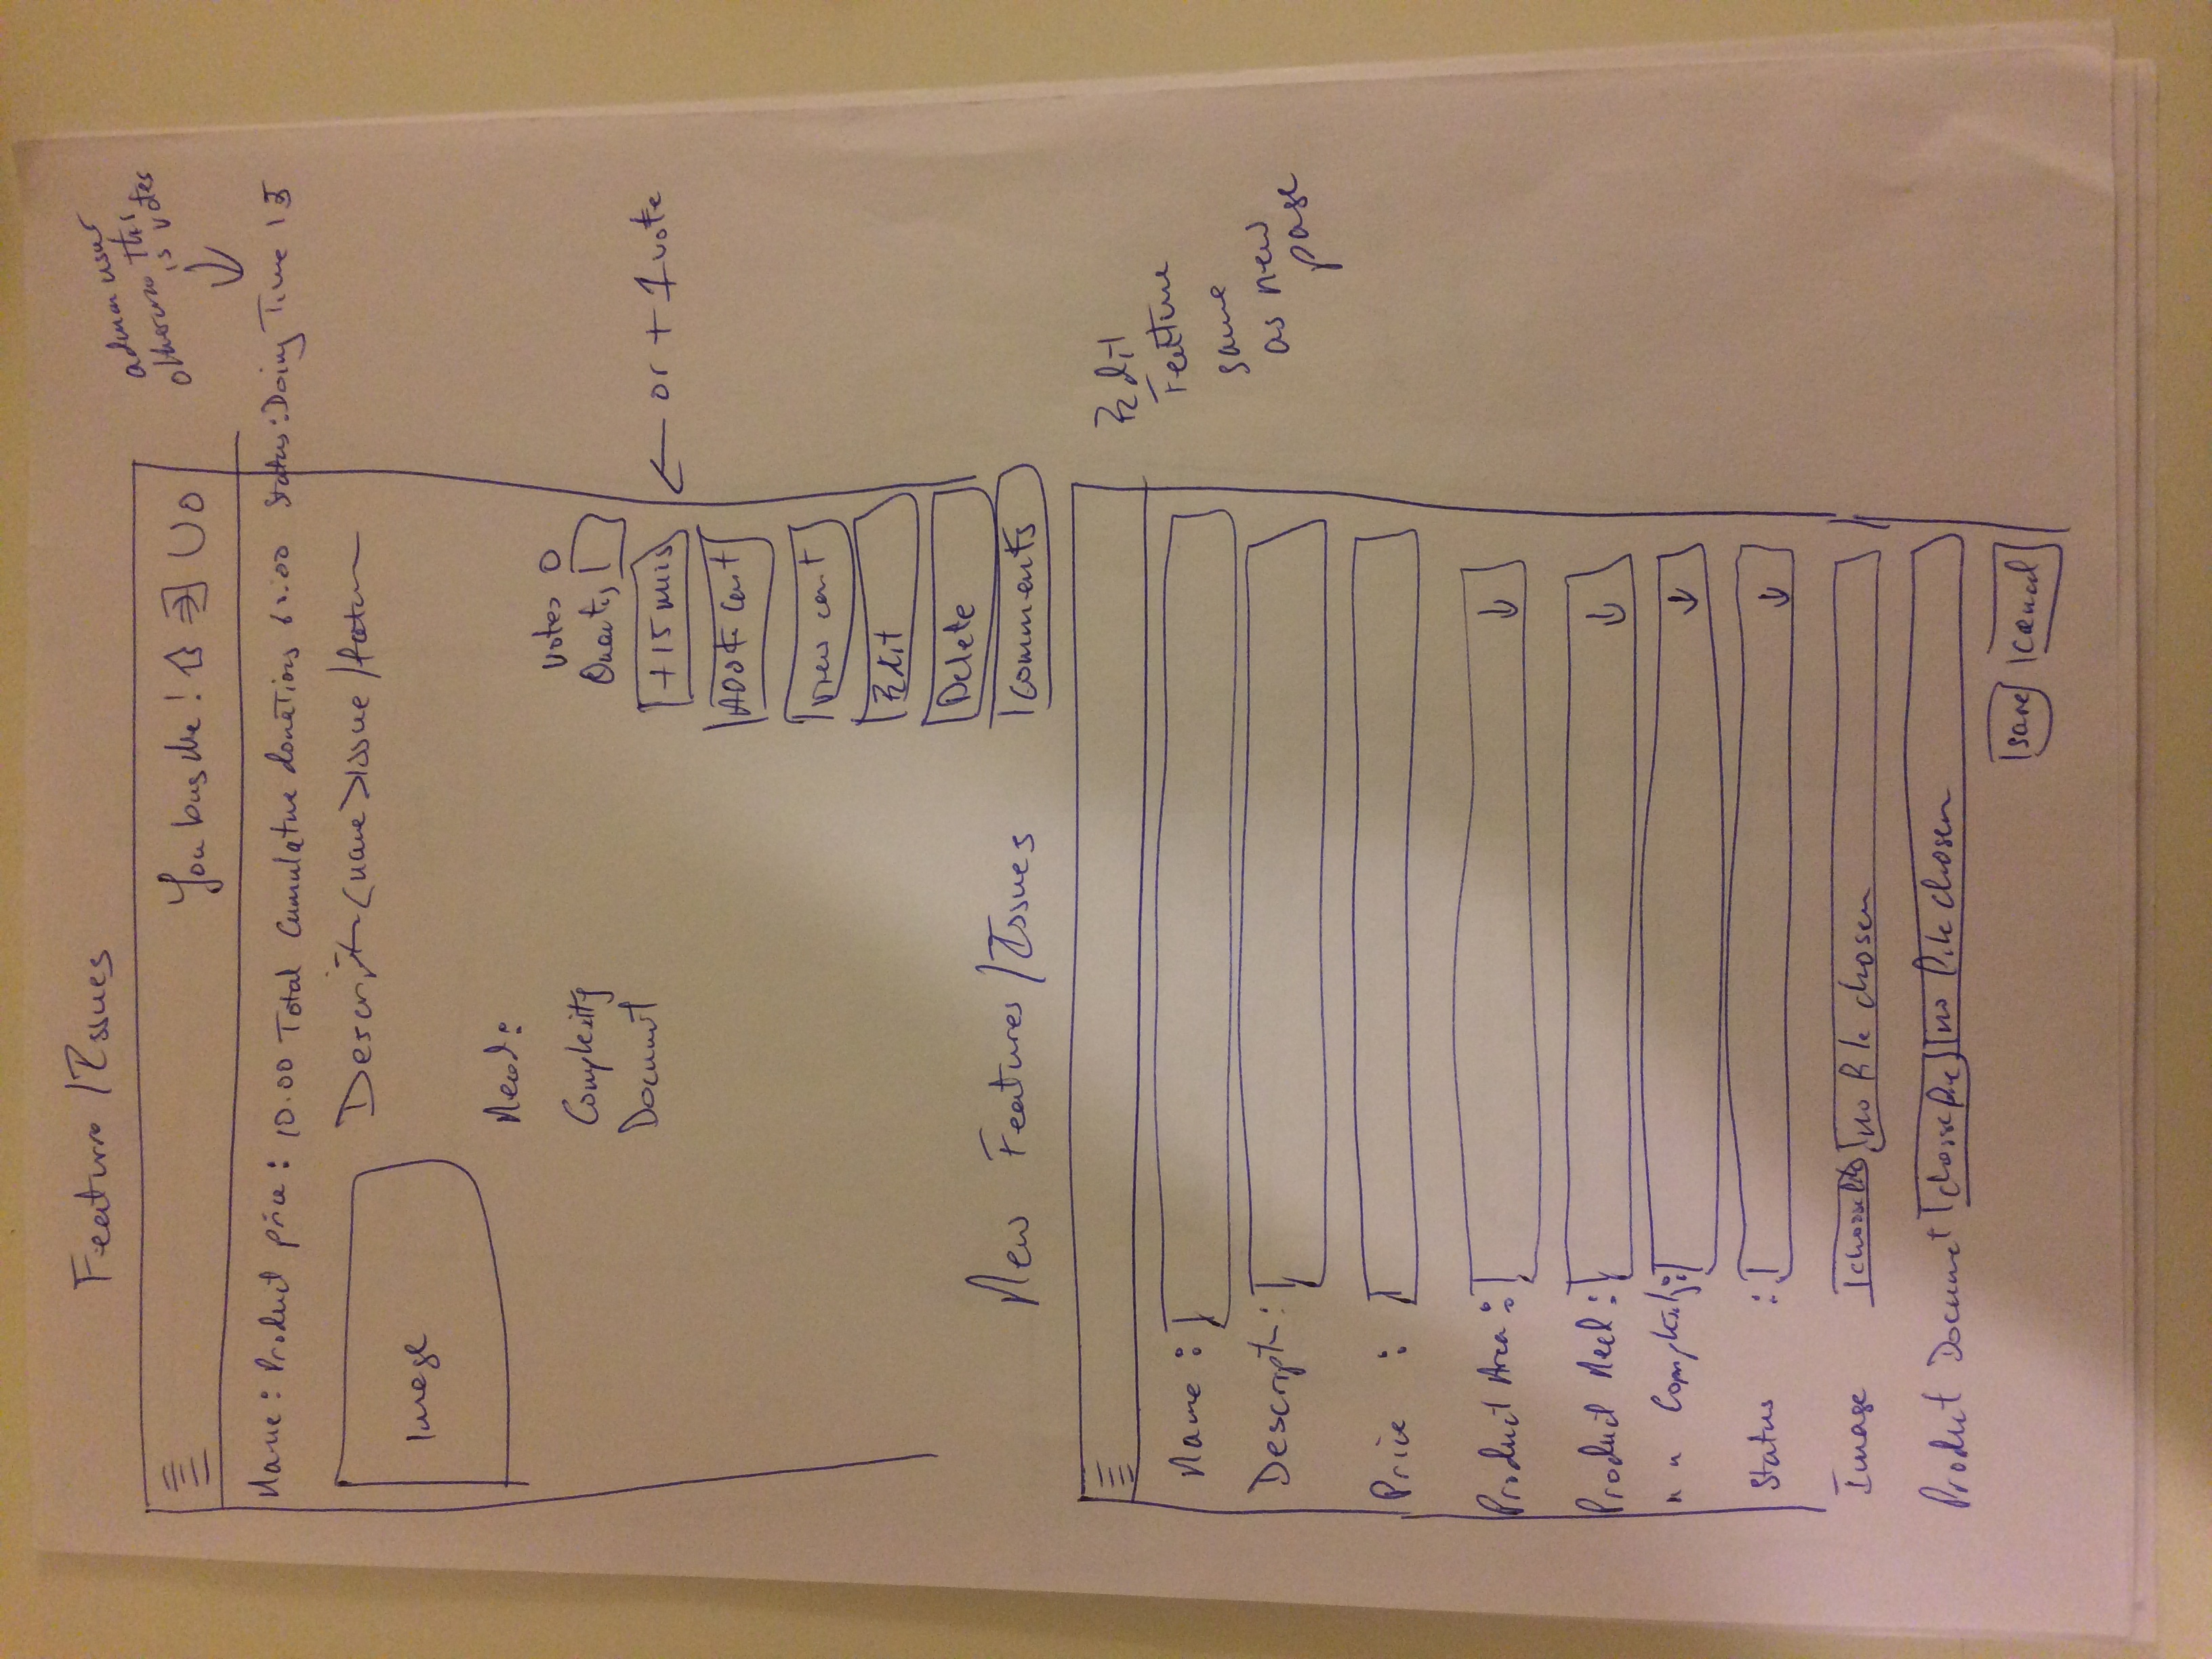 Features/Issues
admin user
otherwise this
is votes
You bug Me! U 0
Name: Product price: 10.00 Total Cumulative donations 60.00 Status: Doing Time 15
Image
Descript <name> issue/
Need:
Votes 0
Complexity
Quantity 1
Document
+15 mins
← or + 1 vote
Add to Cart
View cart
Edit
Delete
New Features/Issues
Comments
Edit
Feature
same
as new
page
Name:
Descript:
Price :
Product Area:
Product Need:
" " Complexity:
Status :
Image choose file no file chosen
Product Document choose file no file chosen
save cancel